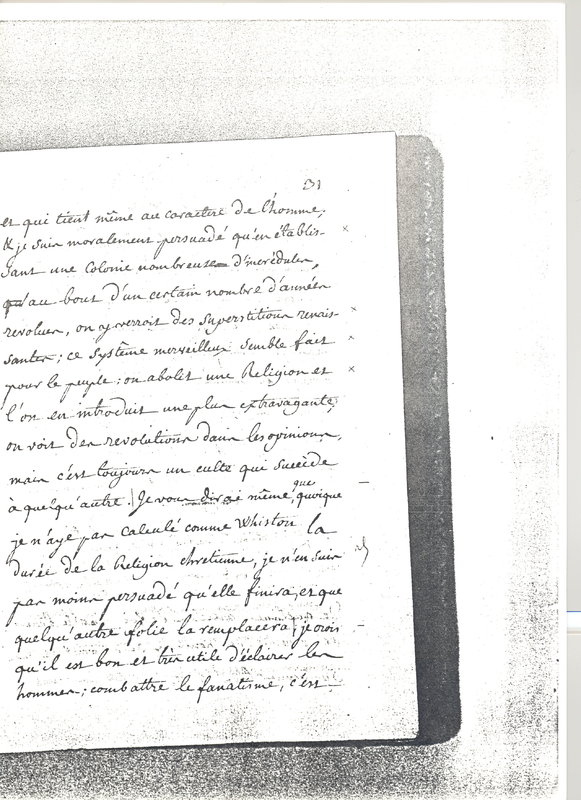 31
et qui tient même au caractere de l'homme;
& je suis moralement persuadé qu'en établis-
sant une Colonie nombreuse d'incrédules,
qu'au bout d'un certain nombre d'années
revolues, on y verroit des superstitions renais-
santes; ce système merveilleux semble fait
pour le peuple: on abolit une Religion et
l'on en introduit une plus extravagante;
on voit des revolutions dans les opinions,
mais c'est toujours un culte qui succède
à quelqu'autre. Je vous dirai même, que quoique
je n'aye pas calculé comme Whiston la
durée de la Religion chretienne, je n'en suis
pas moins persuadé qu'elle finira, et que
quelqu'autre folie la remplacera; je crois
qu'il est bon et très utile d'éclairer les
hommes; combattre le fanatisme, c'est